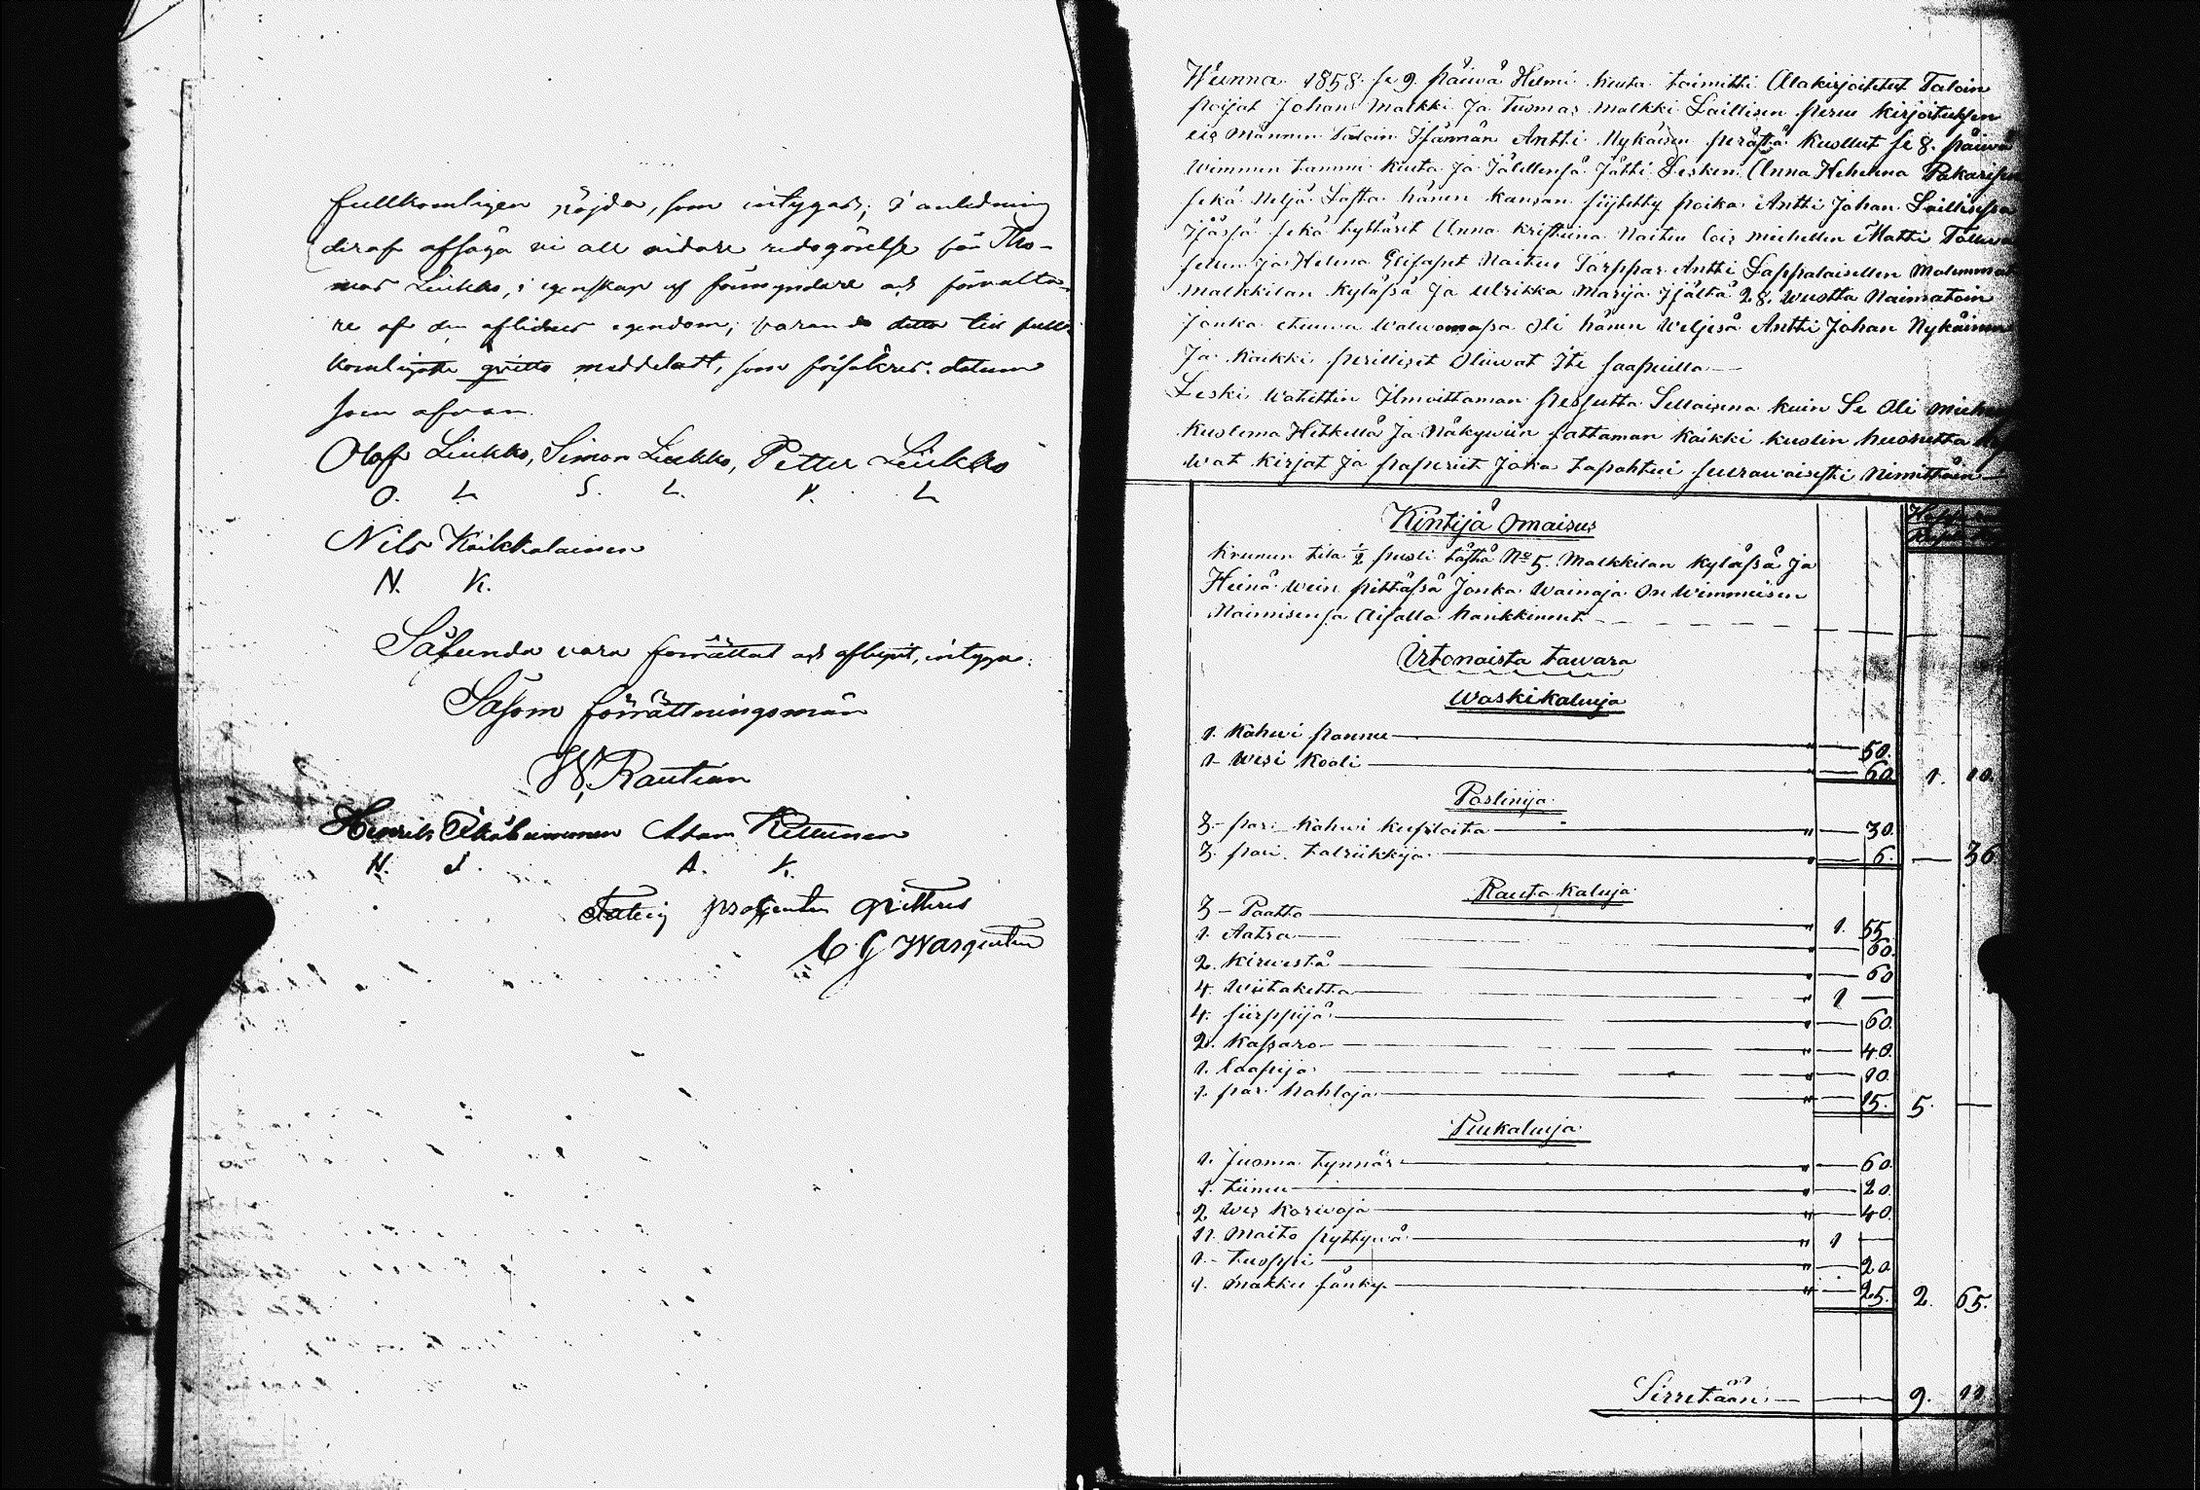 fullkomligen nöjda, som intygas; i anledning
deraf afsäga vi all vidare redogörelse för Tho-
mas Liukko, i egenskap af förmyndare och förvalta-
re af den aflidnes egendom; varande detta till full-
komligaste qvitto meddeladt, som försäkras. datum
som ofvan.
Olof Liukko, Simon Liukko, Petter Liukko
O. L S. L. P. L
Nils Kaikkalainen
N. K.
Sålunda vara förrättat och aflupit, intyga:
Såsom förrättningsmän
W. Rautian
Henrik Adam Kettunen
A. K.
Fattig procenten qvitteras
C G Wargentin
Wunna 1858 se 9. päiwä Helmi kuuta toimitti Allakirjoitetut Taloin
poijat Johan Malkki Ja Tuomas Malkki Laillisen peru kirjoituksen
eis Männen Taloin Isännän Antti Nykäisen perästä kuollut se 8. päiwä
Wimmen tammi kuuta Ja Jälellensä Jätti Lesken Anna Helena Pakarisen
sekä Neljä Lasta hänen kansan siitetty poika Antti Johan Laillisessa
Ijässä sekä tyttäret Anna Kristiina Naitu lois miehellen Matti Tolwa
sellen Ja Helena Elisapet Naitu Torppar Antti Lappalaisellen Molemmat
Malkkilan Kylässä Ja Ulrikka Marija Ijältä 28. wuotta Naimatoin
Jonka etuuwa walwomassa Oli hänen Weljesä Antti Johan Nykäinen
Ja kaikki perilliset Oliiwat Ite saapuilla —
Leski Watittin Ilmoittaman pesyutta Sellaisena kuin Se Oli miehen
kuolema Hetkellä Ja Näkywiin sattaman kaikki kuolin huonetta
wat kirjat Ja paperiit Joka tapahtui seurawaisesti Nimittäin —
Kintijä Omaisus
Krunun tila ½ puoli tästä No 5. Malkkilan Kylässä Ja
Heinä wein pittässä Jonka Wainaja On Wimmeisen
Naimisensa Aisalla hankkinnut
Irtonaista tawara
Waskikaluja
1. Kahwi pannu — " — 50.
1 Wesi Kooli — " — 60 1. 10.
Poslinija
3 pari Kahwi kupploita — " — 30.
3. pari talriikkija — " — 6. — 36
Rauta kaluja
3 — Paatta — " 1. 55
1. Aatra — " — 60.
2. Kirwestä — " — 60
4. Wiitaketta — " 1 —
4. siirppijä — " — 60.
2. Kassaro — " — 40.
1. Laapija — " — 10.
1. par hahloja — " — 15. 5. —
Puukaluja
1. Juoma tynnär — " — 60.
1. tiinu — " — 20.
2 wes Korwoja — " — 40.
11. Maito pyttywä — " 1 —
1 — tuoppi — " — 20
1. makku sänky — " — 25. 2. 65.
Sirretään — 9. 11.